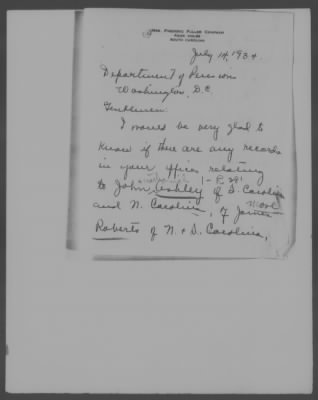 Mrs. Frederic Fuller Chapman
South Carolina
July 14, 1934.
Department of Pension
Washington, D.C.
Gentlemen:
I would be very glad to
know if there are any records
in your office relating
to John Ashley of S. Carolina
and N. Carolina, of James
Roberts of N. & S. Carolina,